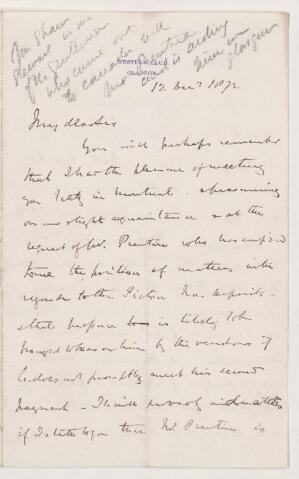 Mr Shaw
Stewart is one
of the Gentlemen
who came out
to Canada with
Mr Prentice
and is aiding
him in
Glasgow
WESTERN CLUB
GLASGOW
12 Decr 1872
My dear Sir
You will perhaps remember
that I had the pleasure of meeting
you lately in Montreal. presuming
on our slight acquaintance & at the
request of Mr. Prentice who has confided
to me the position of matters with
regards to the Pictou
that pressure is likely to be
brought to bear on him by the vendors if
he does not promptly meet his second
payment – I
if I state to you that Mr Prentice is